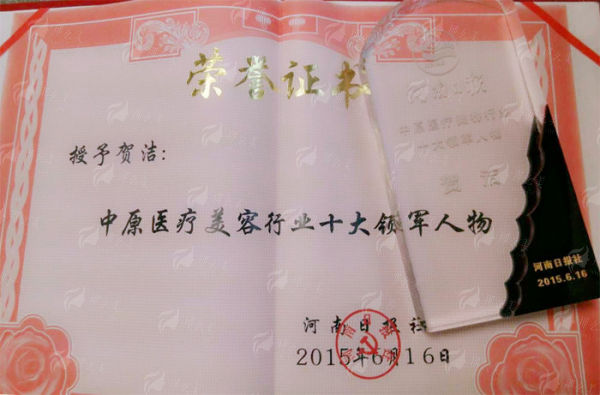 荣誉证书
授予贺洁：
中原医疗美容行业十大领军人物
河南日报社
2015年6月16日
河南日报
中原医疗美容行业
十大领军人物
贺洁
河南日报社
2015.6.16